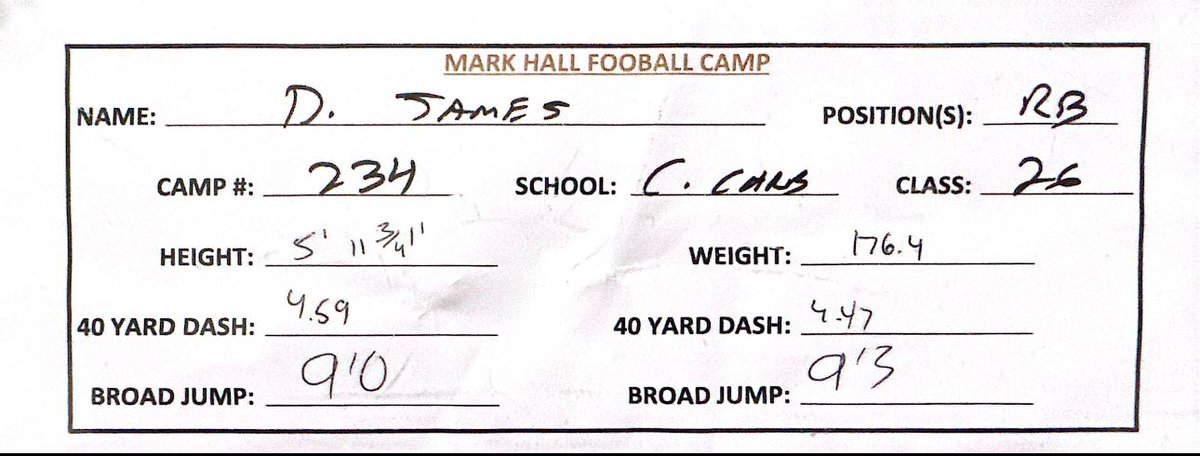 MARK HALL FOOBALL CAMP
NAME: D. JAMES POSITION(S): RB
CAMP #: 234 SCHOOL: C. CARS CLASS: 26
HEIGHT: 5' 11 3/4" WEIGHT: 176.4
40 YARD DASH: 4.59 40 YARD DASH: 4.47
BROAD JUMP: 9'0 BROAD JUMP: 9'3